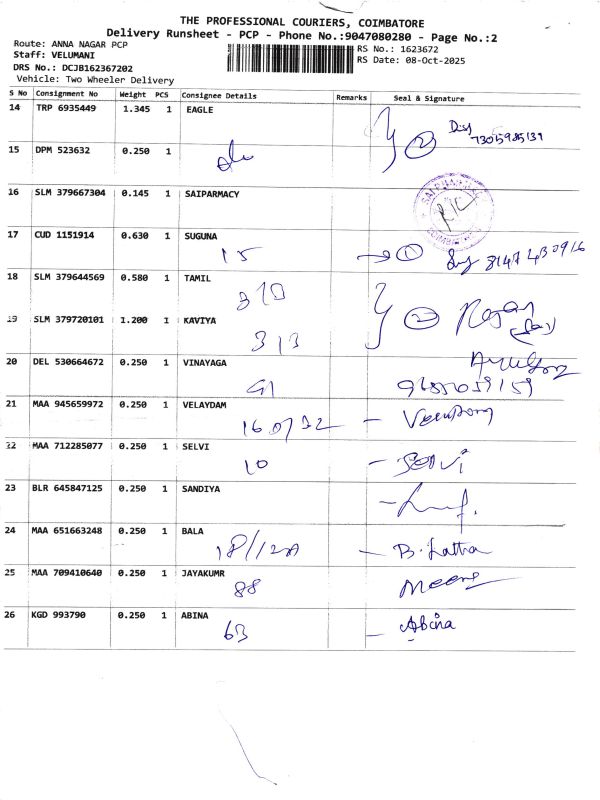 THE PROFESSIONAL COURIERS, COIMBATORE
Delivery Runsheet - PCP - Phone No.:9047080280 - Page No.:2
Route: ANNA NAGAR PCP
Staff: VELUMANI
DRS No.: DCJB162367202
Vehicle: Two Wheeler Delivery
RS No.: 1623672
RS Date: 08-Oct-2025
S No Consignment No Weight PCS Consignee Details Remarks Seal & Signature
14 TRP 6935449 1.345 1 EAGLE
2
15 DPM 523632 0.250 1
16 SLM 379667304 0.145 1 SAIPARMACY
17 CUD 1151914 0.630 1 SUGUNA
15 1
18 SLM 379644569 0.580 1 TAMIL
310
19 SLM 379720101 1.200 1 KAVIYA
313 2
20 DEL 530664672 0.250 1 VINAYAGA
21 MAA 945659972 0.250 1 VELAYDAM
22 MAA 712285077 0.250 1 SELVI
10 - SELVI
23 BLR 645847125 0.250 1 SANDIYA
24 MAA 651663248 0.250 1 BALA
18/12A - B. Latha
25 MAA 709410640 0.250 1 JAYAKUMR
88 Meena
26 KGD 993790 0.250 1 ABINA
63 - Abina